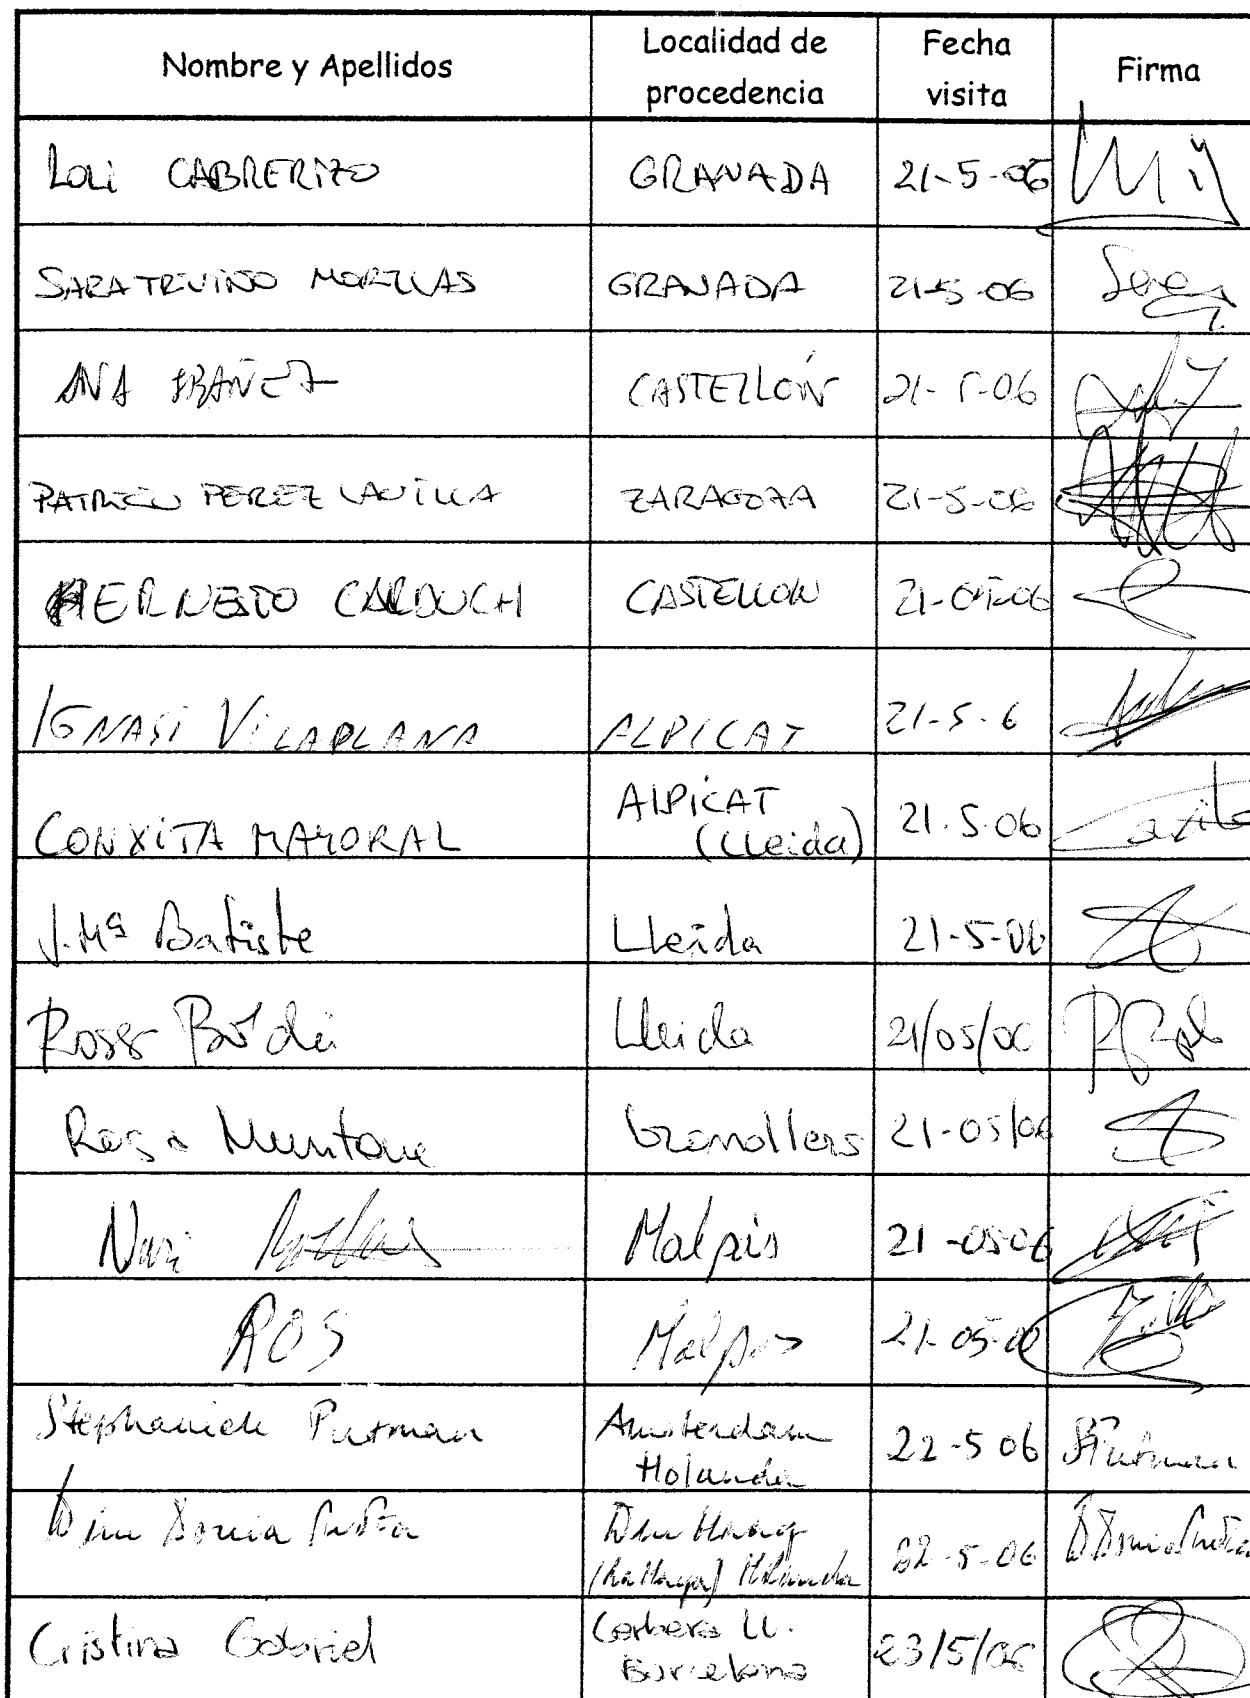 Nombre y Apellidos Localidad de procedencia Fecha visita Firma
Loli CABRERIZO GRANADA 21-5-06
SARA TRIVIÑO MORILLAS GRANADA 21-5-06
ANA IBAÑEZ CASTELLÓN 21-5-06
PEREZ LAVILLA ZARAGOZA 21-5-06
HERNESTO CARDUCH CASTELLON 21-05-06
IGNASI VILAPLANA ALPICAT 21-5-6
CONXITA MAYORAL AlPiCAT (Lleida) 21.5.06
J.Mª Batiste Lleida 21-5-06
Rosa Lleida 21/05/06
Rosa Muntane Granollers 21-05/06
Nuri 21-05-06
ROS 21-05-06
Putman Amsterdam Holanda 22-5 06 SPutman
Den Haag (La Haya) Holanda 22-5-06
Cristina Gabriel Cerbera Ll. Barcelona 23/5/06